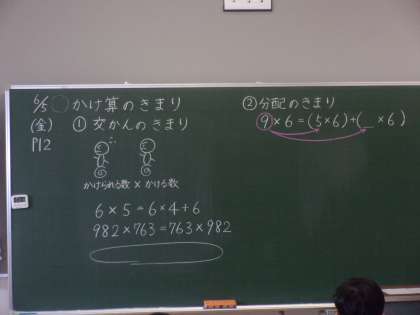 6/5 かけ算のきまり
(金) ①交かんのきまり
P12
かけられる数×かける数
6×5=6×4+6
982×763=763×982
②分配のきまり
9×6=(5×6)+(_×6)